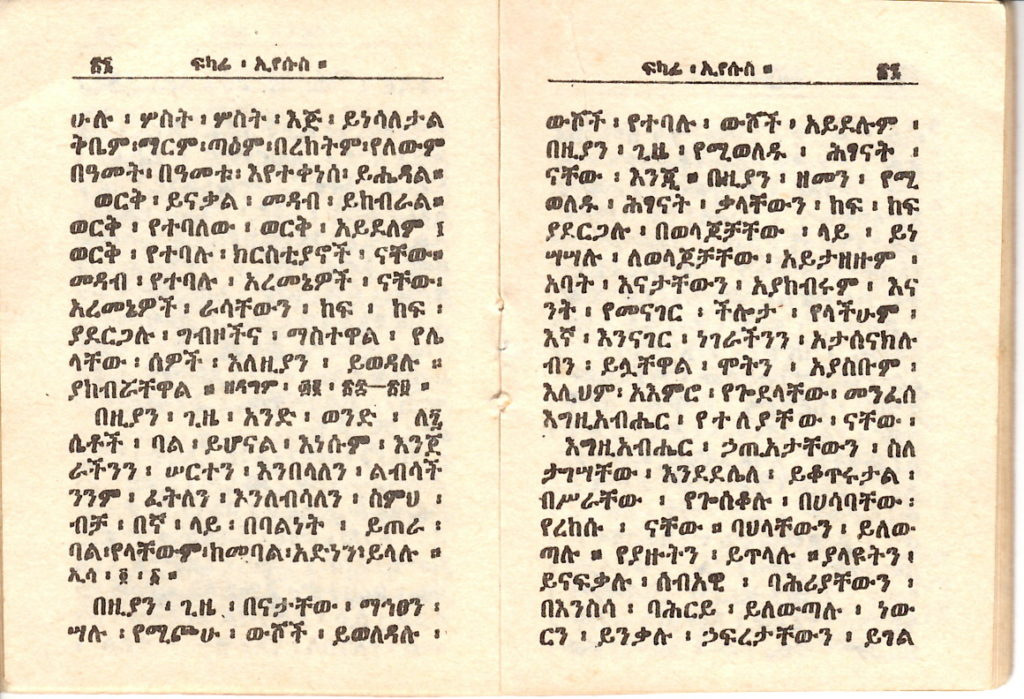 ፳፮ ፍካሬ ፡ ኢየሱስ ።
ሁሉ ፡ ሦስት ፡ ሦስት ፡ እጅ ፡ ይነሳለታል
ቅቤም፡ማርም፡ጣዕም፡በረከትም፡የለውም
በዓመት፡ በዓመቱ፡ እየተቀነሰ፡ ይሔዳል።
ወርቅ ፡ ይናቃል ፡ መዳብ ፡ ይከብራል።
ወርቅ ፡ የተባለው ፡ ወርቅ ፡ አይደለም ፤
ወርቅ ፡ የተባሉ ፡ ክርስቲያኖች ፡ ናቸው።
መዳብ ፡ የተባሉ ፡ አረመኔዎች ፡ ናቸው፡
አረመኔዎች ፡ ራሳቸውን ፡ ከፍ ፡ ከፍ ፡
ያደርጋሉ ፡ ግብዞችና ፡ ማስተዋል ፡ የሌ
ላቸው ፡ ሰዎች ፡ እለዚያን ፡ ይወዳሉ ።
ያከብሯቸዋል ። ዘዳግም ፡
በዚያን ፡ ጊዜ ፡ አንድ ፡ ወንድ ፡ ለ፯
ሴቶች ፡ ባል ፡ ይሆናል ፡ እነሱም ፡ እንጀ
ራችንን ፡ ሠርተን ፡ እንበላለን ፡ ልብሳች
ንንም ፡ ፈትለን ፡ እንለብሳለን ፡ ስምህ ፡
ብቻ ፡ በኛ ፡ ላይ ፡ በባልነት ፡ ይጠራ ፡
ባል፡የላቸውም፡ከመባል፡አድነን፡ይላሉ ።
ኢሳ ፡ ፬ ፡ ፩ ።
በዚያን ፡ ጊዜ ፡ በናታቸው ፡ ማኅፀን ፡
ሣሉ ፡ የሚጮሁ ፡ ውሾች ፡ ይወለዳሉ ፡
ፍካሬ ፡ ኢየሱስ ። ፳፯
ውሾች ፡ የተባሉ ፡ ውሾች ፡ አይደሉም ፡
በዚያን ፡ ጊዜ ፡ የሚወለዱ ፡ ሕፃናት ፡
ናቸው ፡ እንጂ ። በዚያን ፡ ዘመን ፡ የሚ
ወለዱ ፡ ሕፃናት ፡ ቃላቸውን ፡ ከፍ ፡ ከፍ
ያደርጋሉ ፡ በወላጆቻቸው ፡ ላይ ፡ ይነ
ሣሣሉ ፡ ለወላጆቻቸው ፡ አይታዘዙም ፡
አባት ፡ እናታቸውን ፡ አያከብሩም ፡ እና
ንት ፡ የመናገር ፡ ችሎታ ፡ የላችሁም ፡
እኛ ፡ እንናገር ፡ ነገራችንን ፡ አታሰናክሉ
ብን ፡ ይሏቸዋል ፡ ሞትን ፡ አያስቡም ፡
እሊህም፡ አእምሮ ፡ የጐደላቸው፡ መንፈሰ
እግዚአብሔር ፡ የተለያቸው ፡ ናቸው ፡
እግዚአብሔር ፡ ኃጢአታቸውን ፡ ስለ
ታገሣቸው ፡ እንደደሴለ ፡ ይቆጥሩታል ፡
በሥራቸው ፡ የጐሰቆሉ ፡ በሀሳባቸው ፡
የረከሱ ፡ ናቸው ። ባህላቸውን ፡ ይለው
ጣሉ ። የያዙትን ፡ ይጥላሉ ። ያላዩትን ፡
ይናፍቃሉ ፡ ሰብአዊ ፡ ባሕሪያቸውን ፡
በእንስሳ ፡ ባሕርይ ፡ ይለውጣሉ ፡ ነው
ርን ፡ ይንቃሉ ፡ ኃፍረታቸውን ፡ ይገል